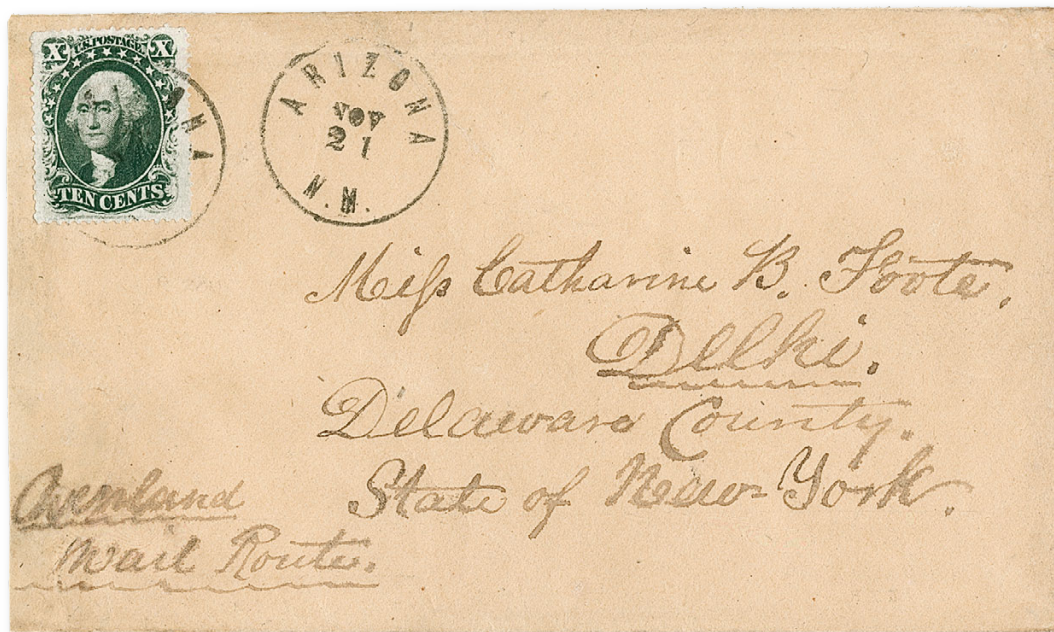 X U.S. POSTAGE. X
TEN CENTS
ANA
ARIZONA
NOV
21
N.M.
Miſs Catharine B. Foote.
Delhi.
Delaware County.
State of New-York.
Overland
Mail Route.